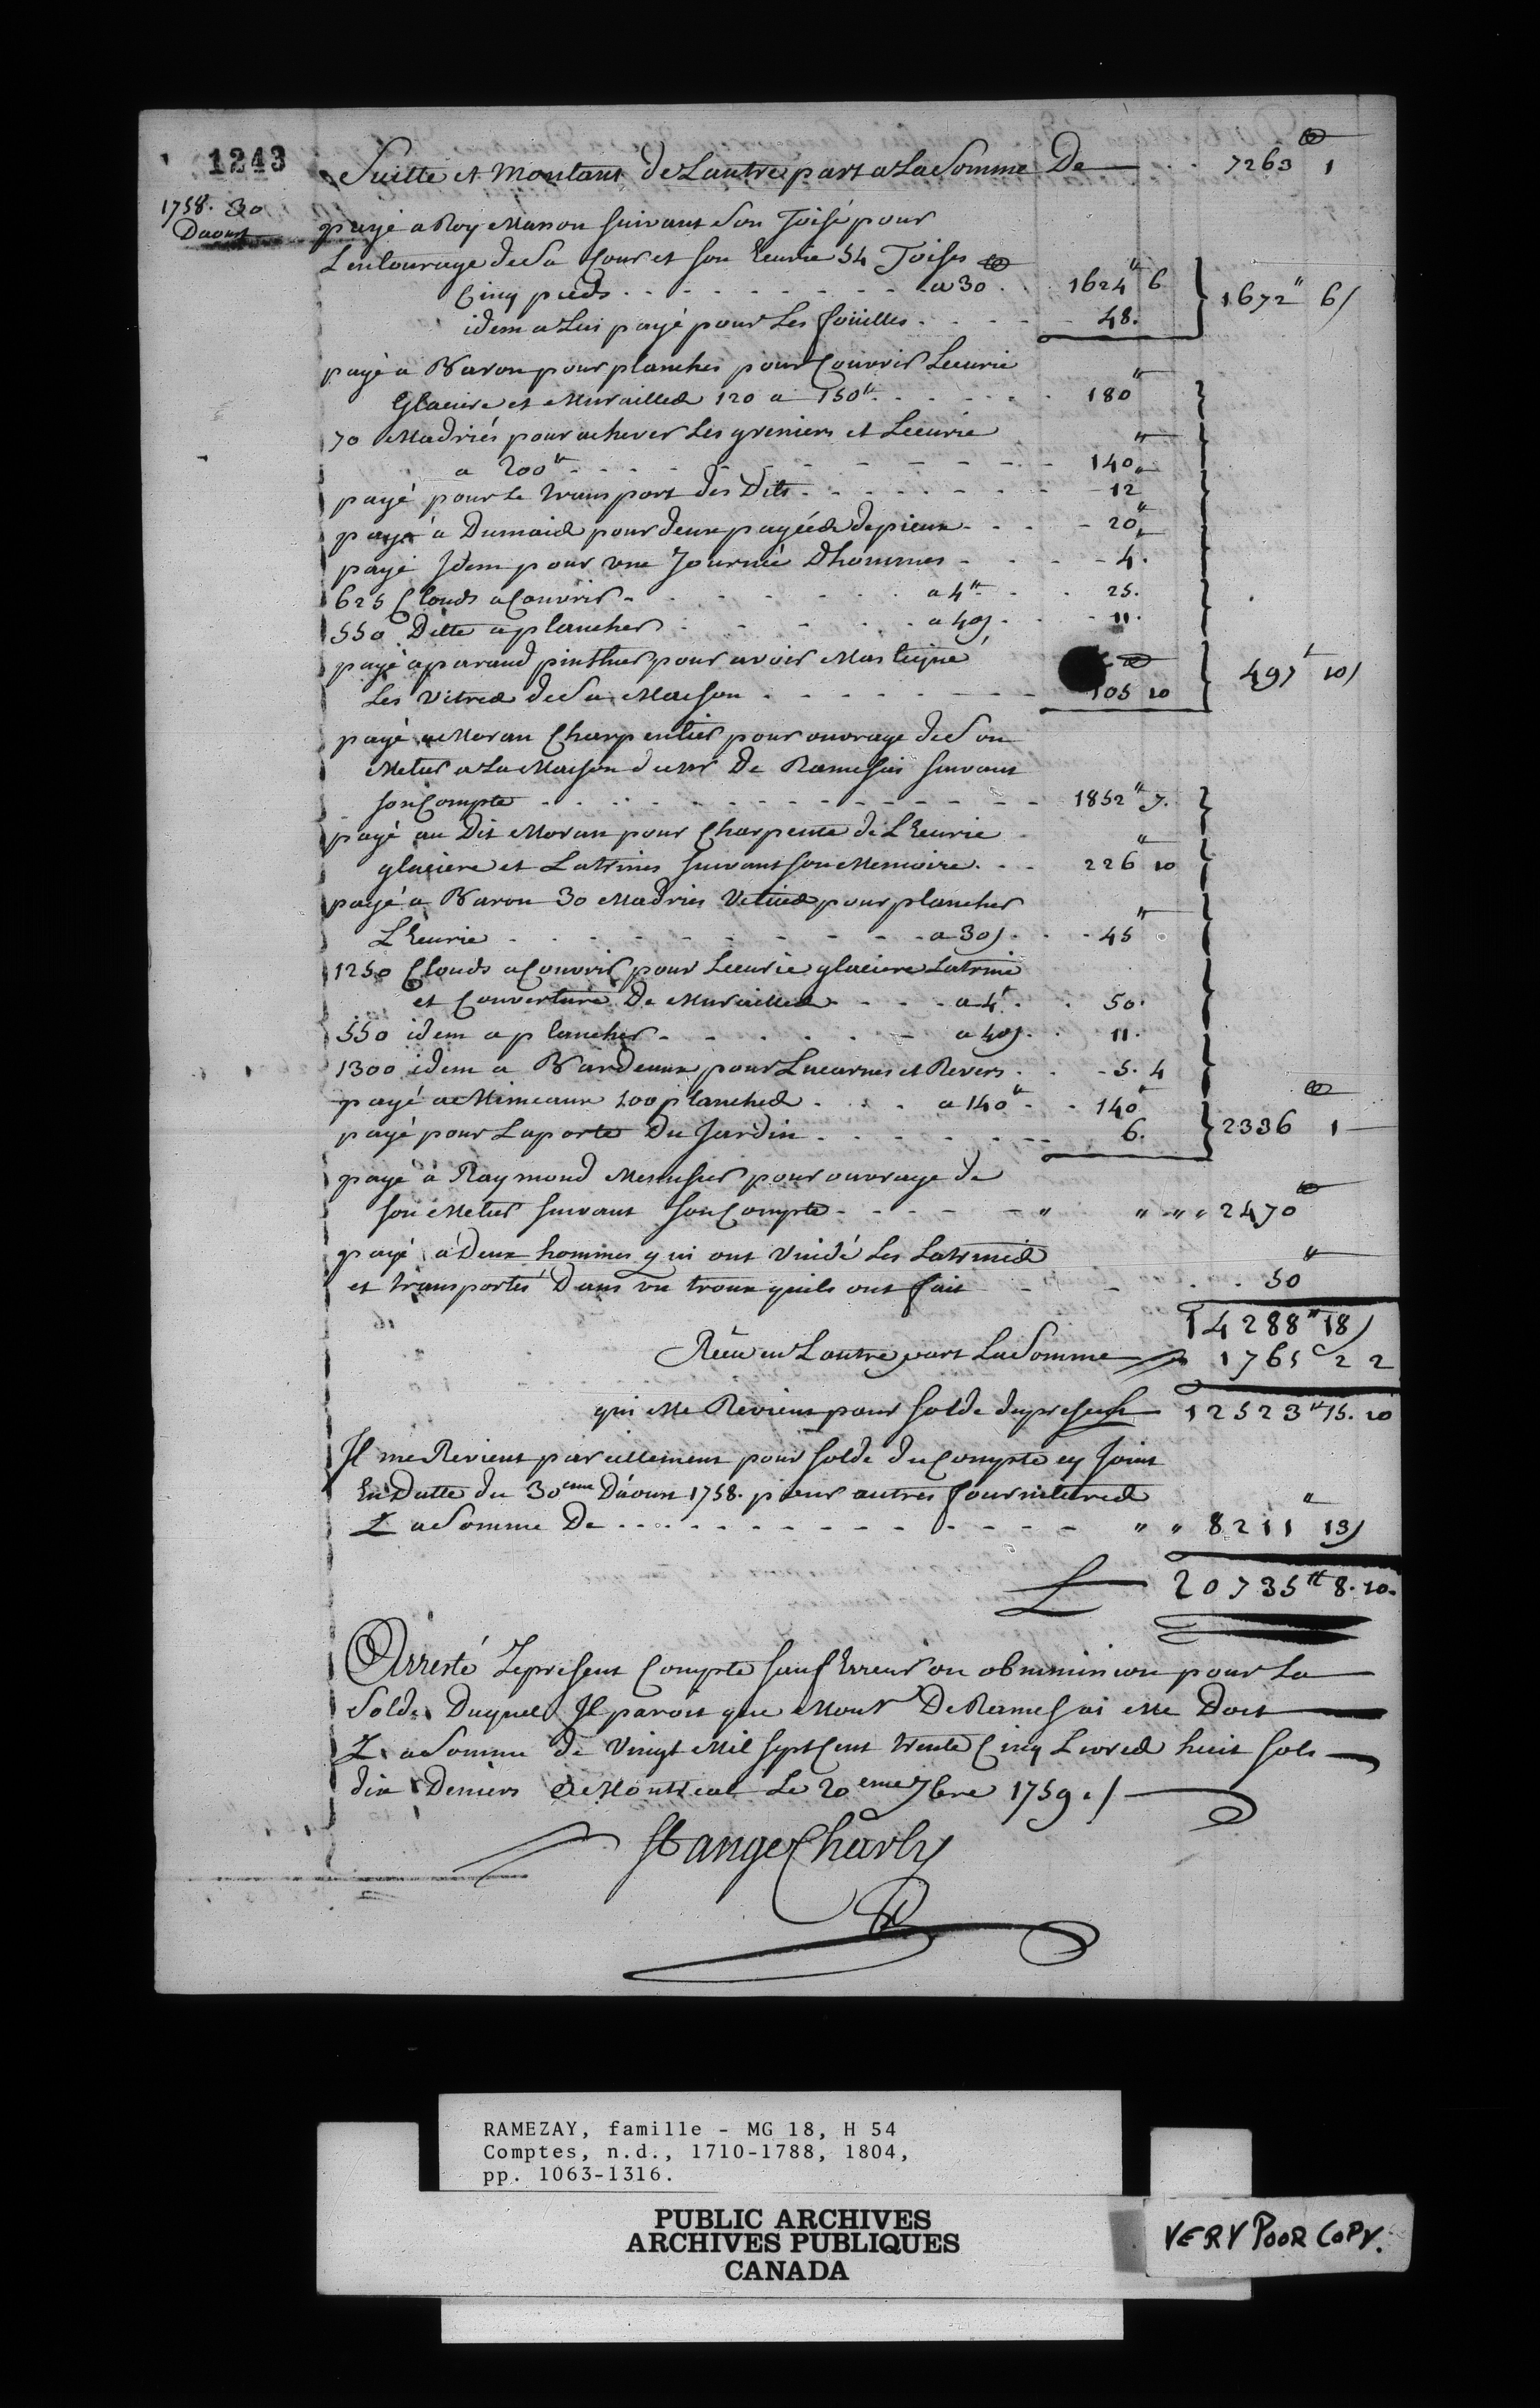 1243
Suitte et Montant de Lautre part a La Somme De 7263 ⁗ 1
1758. 30
Daoust
payé a Roy Masson suivant Son Toisé pour
Lentourage de Sa Cour et son Ecurie 54 Toises
Cinq pieds - - - a 30 ⁗ 1624 ⁗ 6
idem a Lui payé pour Les foüilles - - - 48. } 1672 ⁗ 6s
payé a Baron pour planches pour Couvrir Lecurie
Glaciere et Murailles 120 a 150 ⁗ - - - 180 ⁗
70 Madriés pour achever Les greniers et Lecurie
a 200 ⁗ - - - 140 ⁗
payé pour Le transport des Dits - - - 12
payé a Dumais pour deux pagées de pieux - - - 20 ⁗
payé Idem pour une Journée Dhommes - - - 4.
625 Clouds a Couvrir - - - a 4 ⁗ - - - 25.
550 Ditte a plancher - - - a 40s - - - 11.
payé a parand pinthier pour avoir Mastiqué
Les Vitres de Sa Maison - - - 105 10 } 497 ⁗ 10s
payé a Moran Charpentier pour ouvrage de Son
Metier a La Maison du Mr De Ramesai suivant
son Compte - - - 1852 ⁗ 7.
payé au Dit Moran pour Charpente de L'Ecurie
glaciere et Latrines suivant son Memoire - - - 226 ⁗ 10
payé a Baron 30 Madriés pour plancher
L'Ecurie - - - a 30s - - - 45 ⁗
1250 Clouds a Couvrir pour Lecurie glaciere Latrine
et Couverture De Murailles - - - a 4 ⁗ - - - 50.
550 idem a plancher - - - a 40s - - - 11.
1300 idem a Bardeaux pour Lucarnes et Revers - - - 5. 4
payé a Mimeaux 100 planches - - - a 140 ⁗ - - - 140 ⁗
payé pour La porte Du Jardin - - - 6. } 2336 ⁗ 1
payé a Raymond Menusier pour ouvrage de
son Metier suivant son Compte - - - " " " " 2470 ⁗
payé a Deux hommes qui ont Vuidé Les Latrines
et transportés Dans un troux quils ont fait - - - 50 ⁗
14288 ⁗ 18s
Reçu en Lautre part La Somme 1765 2 2
qui Me Revient pour solde du present 12523 ⁗ 15. 10
Il me Revient pareillement pour solde du Compte cy Joint
En Datte du 30eme Daoust 1758. pour autres fournitures
La Somme De - - - " " 8211 ⁗ 13s
L 20735 ⁗ 8. 10.
Arresté Le present Compte sauf Erreur ou obmmission pour La
Solde Duquel Il paroit que Monsr De Ramesai Me Doit
La Somme de Vingt Mil sept Cent trente Cinq Livres huit sols
dix Deniers A Montreal Le 20eme 7bre 1759. /
St ange Charly
RAMEZAY, famille - MG 18, H 54
Comptes, n.d., 1710-1788, 1804,
pp. 1063-1316.
PUBLIC ARCHIVES
ARCHIVES PUBLIQUES
CANADA
VERY POOR COPY.